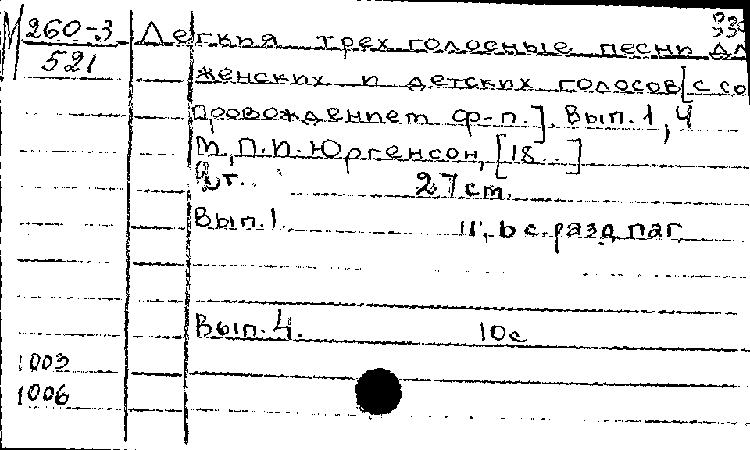 М 260-3 Легкия трехголосные песни дл
521 женских и детских голосов [с со
провождением ф-п.]. Вып. 1, 4
М., П.И. Юргенсон, [18 ..]
2 т. 27 см.
Вып. 1 с. разд. паг.
Вып. 4. 10 с
1003
1006